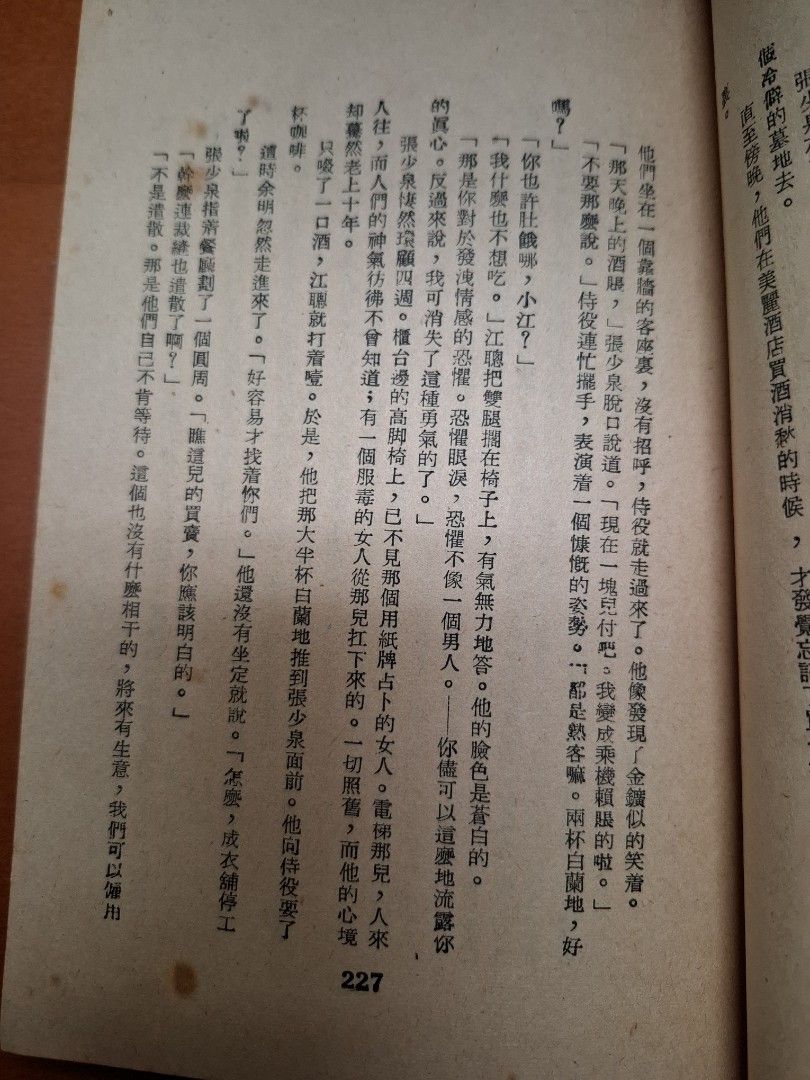 張少泉
個冷僻的墓地去。
直至傍晚，他們在美麗酒店買酒消愁的時候，才發覺忘記
他們坐在一個靠牆的客座裏，沒有招呼，侍役就走過來了。他像發現了金鑛似的笑着。
「那天晚上的酒賬，」張少泉脫口說道。「現在一塊兒付吧。我變成乘機賴賬的啦。」
「不要那麽說。」侍役連忙擺手，表演着一個慷慨的姿勢。「都是熟客嘛。兩杯白蘭地，好
嗎？」
「你也許肚餓哪，小江？」
「我什麽也不想吃。」江聰把雙腿擱在椅子上，有氣無力地答。他的臉色是蒼白的。
「那是你對於發洩情感的恐懼。恐懼眼淚，恐懼不像一個男人。——你儘可以這麽地流露你
的眞心。反過來說，我可消失了這種勇氣的了。」
張少泉悽然環顧四週。櫃台邊的高脚椅上，已不見那個用紙牌占卜的女人。電梯那兒，人來
人往，而人們的神氣彷彿不曾知道；有一個服毒的女人從那兒扛下來的。一切照舊，而他的心境
却驀然老上十年。
只啜了一口酒，江聰就打着噎。於是，他把那大半杯白蘭地推到張少泉面前。他向侍役要了
杯咖啡。
這時余明忽然走進來了。「好容易才找着你們。」他還沒有坐定就說。「怎麽，成衣舖停工
了啦？」
張少泉指着餐廳劃了一個圓周。「瞧這兒的買賣，你應該明白的。」
「幹麽連裁縫也遣散了啊？」
「不是遣散。那是他們自己不肯等待。這個也沒有什麽相干的，將來有生意，我們可以僱用
227